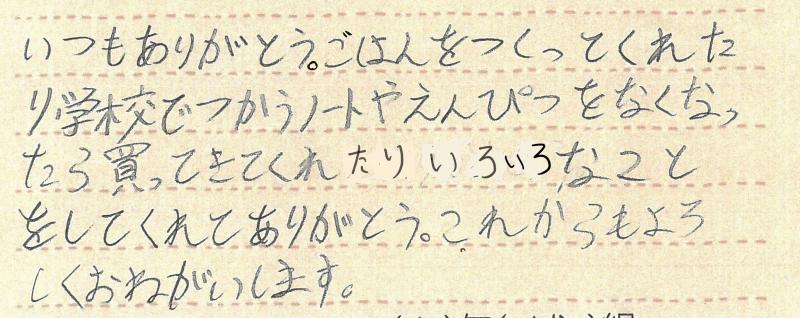 いつもありがとう。ごはんをつくってくれた
り学校でつかうノートやえんぴつをなくなっ
たら買ってきてくれたりいろいろなこと
をしてくれてありがとう。これからもよろ
しくおねがいします。